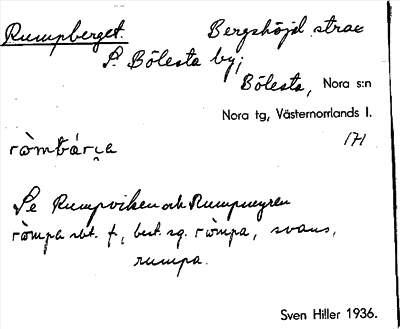 Rumpberget. Bergshöjd strax
S. Bölesta by;
Bölesta, Nora s:n
Nora tg, Västernorrlands l.
171
ròmbárɐ̯a
Se Rumpviken och Rumpmyren
ròmpa sbt. f., best. sg. ròmpa, svans,
rumpa.
Sven Hiller 1936.